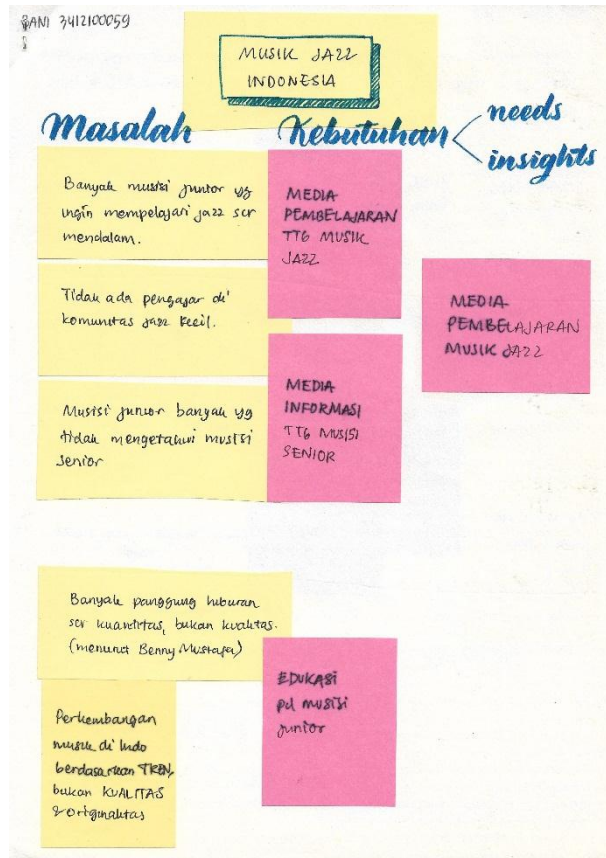 RANI 3412100059
MUSIK JAZZ
INDONESIA
Masalah
Kebutuhan
needs
insights
Banyak musisi junior yg
ingin mempelajari jazz scr
mendalam.
Tidak ada pengajar di
komunitas jazz kecil.
Musisi junior banyak yg
tidak mengetahui musisi
senior
MEDIA
PEMBELAJARAN
TTG MUSIK
JAZZ
MEDIA
INFORMASI
TTG MUSISI
SENIOR
MEDIA
PEMBELAJARAN
MUSIK JAZZ
Banyak panggung hiburan
scr kuantitas, bukan kualitas.
(menurut Benny Mustafa)
Perkembangan
musik di Indo
berdasarkan TREN,
bukan KUALITAS
& originalitas
EDUKASI
pd musisi
junior